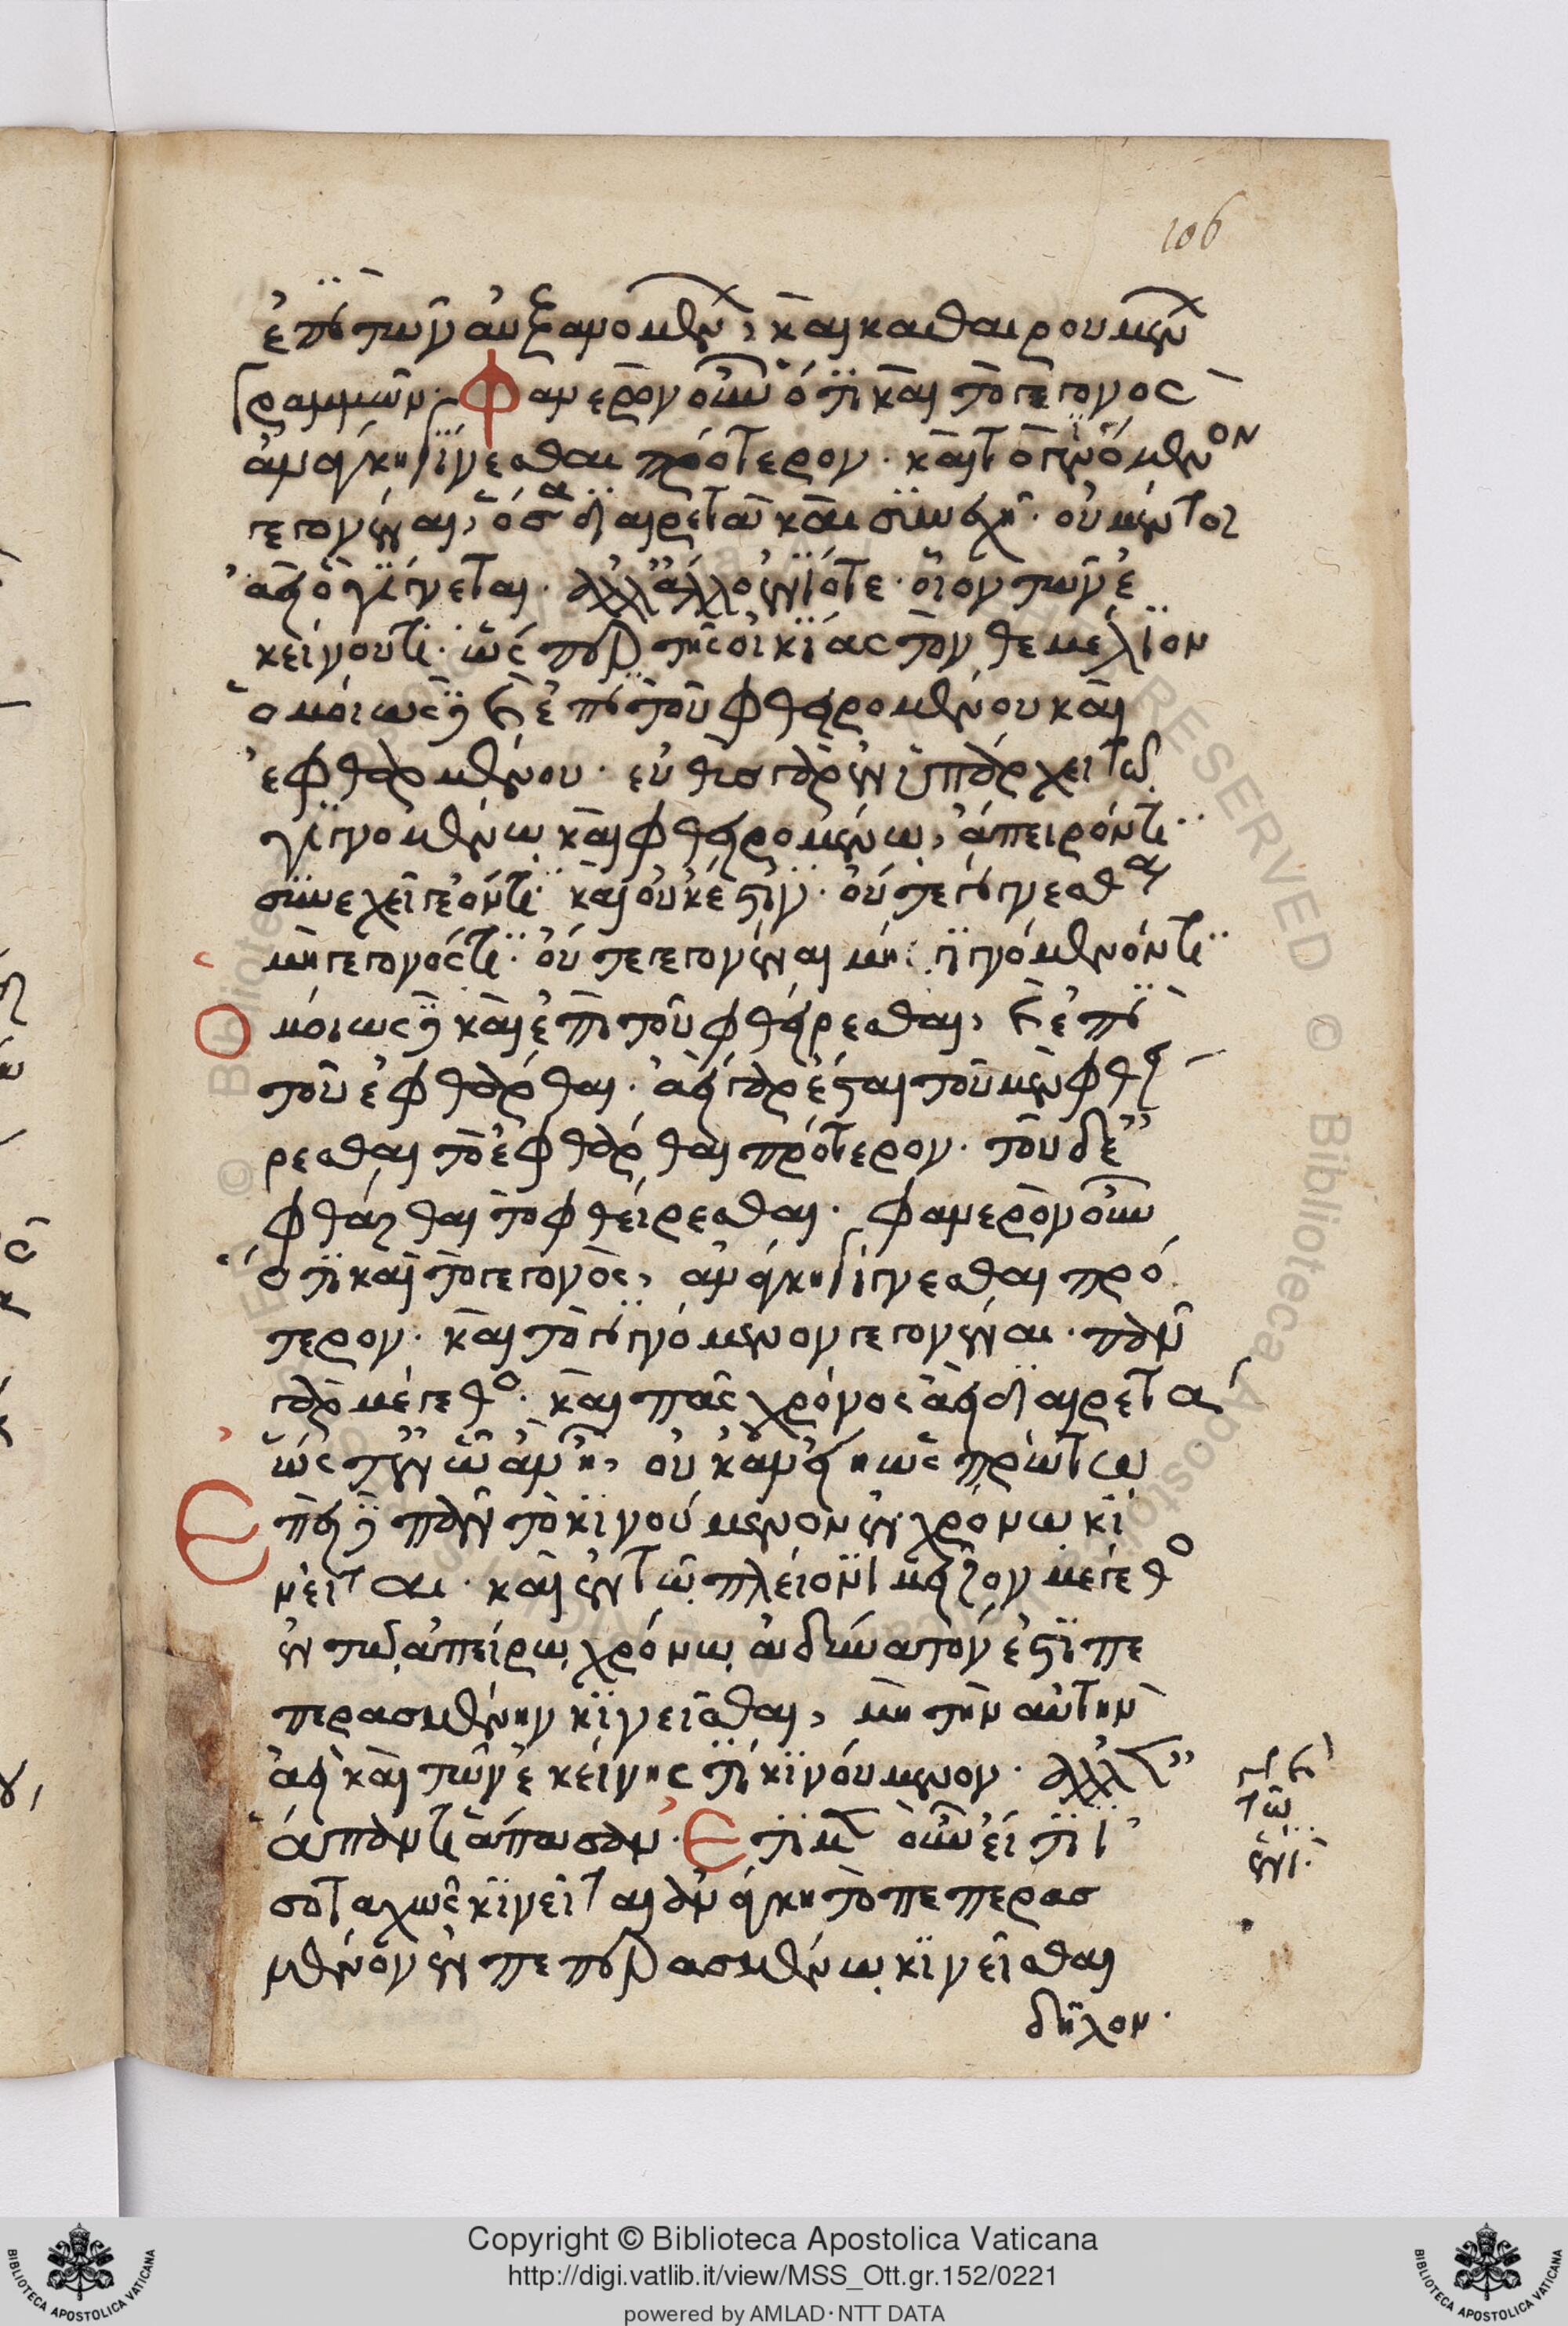 106
ἐπὶ τῶν αὐξανομένων, καὶ καθαιρουμένων
γραμμῶν. Φανερὸν οὖν ὅτι καὶ τὸ γεγονὸς
ἀνάγκη γίνεσθαι πρότερον. καὶ τὸ γινόμενον
γεγονέναι, ὅσα διαιρετὰ καὶ συνεχῆ. οὐ μέντοι
ἀεὶ ὃ γίγνεται. ἀλλ' ἄλλο ἐνίοτε. οἷον τῶν ἐ
κείνου τι. ὥσπερ τῆς οἰκίας τὸν θεμέλιον
ὁμοίως δὲ καὶ ἐπὶ τοῦ φθειρομένου καὶ
ἐφθαρμένου. εὐθὺς γὰρ ἐνυπάρχει τῷ
γιγνομένῳ καὶ φθειρομένῳ, ἄπειρόν τι
συνεχεῖ γε ὄντι καὶ οὐκ ἔστιν. οὔτε γίγνεσθαι
μὴ γεγονός τι. οὔτε γεγονέναι μὴ γιγνόμενόν τι
Ὁμοίως δὲ καὶ ἐπὶ τοῦ φθείρεσθαι, καὶ ἐπὶ
τοῦ ἐφθάρθαι. ἀεὶ γὰρ ἔσται τοῦ μὲν φθεί
ρεσθαι τὸ ἐφθάρθαι πρότερον. τοῦ δὲ
φθάρθαι τὸ φθείρεσθαι. φανερὸν οὖν
ὅτι καὶ τὸ γεγονὸς, ἀνάγκη γίγνεσθαι πρό
τερον. καὶ τὸ γιγνόμενον γεγονέναι. πᾶν
γὰρ μέγεθος. καὶ πᾶς χρόνος ἀεὶ διαιρετά
ὥστ' ἐν ᾧ ἂν ᾖ, οὐκ ἂν εἴη ὡς πρώτῳ
Ἐπεὶ δὲ πᾶν τὸ κινούμενον ἐν χρόνῳ κι
νεῖται. καὶ ἐν τῷ πλείονι μεῖζον μέγεθος
ἐν τῷ ἀπείρῳ χρόνῳ ἀδύνατόν ἐστι πε
περασμένην κινεῖσθαι, μὴ τὴν αὐτὴν
ἀεὶ καὶ τῶν ἐκείνης τι κινούμενον. ἀλλ' ἐν
ἅπαντι ἅπασαν. Ἐ τι μὲν οὖν εἴ τι ἰ
σοταχῶς κινεῖται ἀνάγκη τὸ πεπερασ
μένον ἐν πεπερασμένῳ κινεῖσθαι
δῆλον.